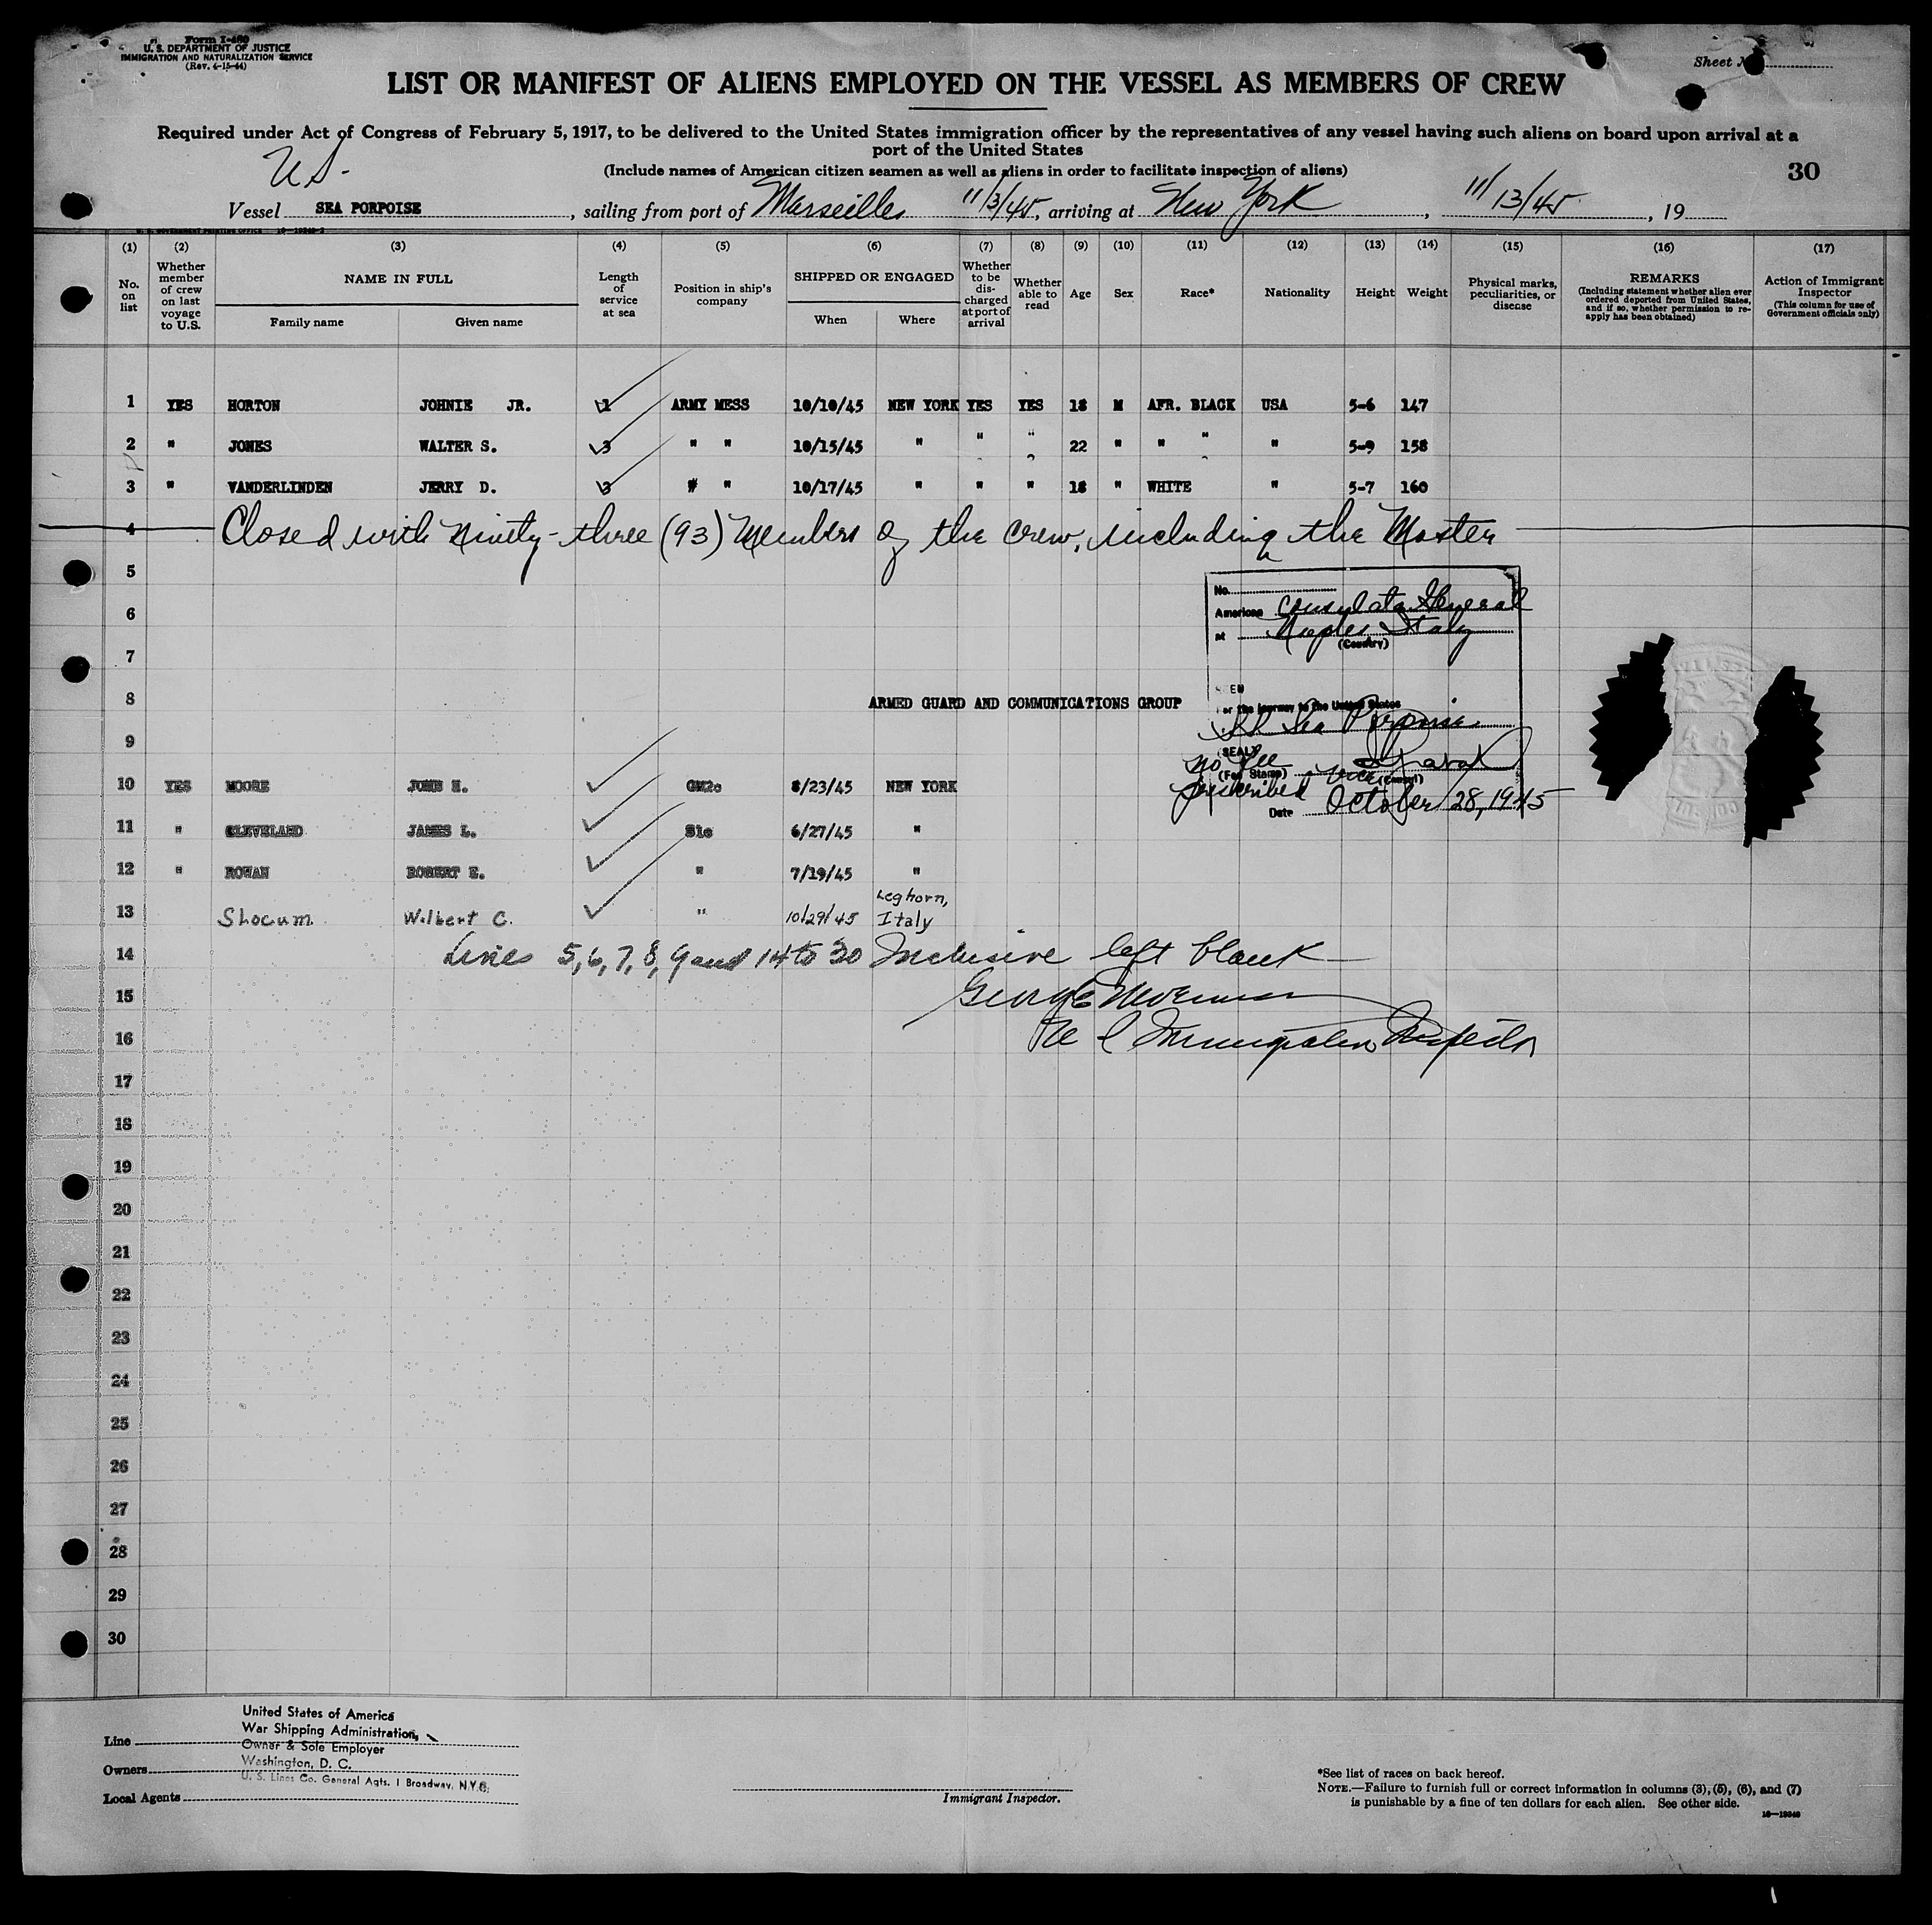 Form I-480
U. S. DEPARTMENT OF JUSTICE
IMMIGRATION AND NATURALIZATION SERVICE
(Rev. 4-15-44)
Sheet
LIST OR MANIFEST OF ALIENS EMPLOYED ON THE VESSEL AS MEMBERS OF CREW
Required under Act of Congress of February 5, 1917, to be delivered to the United States immigration officer by the representatives of any vessel having such aliens on board upon arrival at a
port of the United States
(Include names of American citizen seamen as well as aliens in order to facilitate inspection of aliens)
30
US.
Vessel SEA PORPOISE, sailing from port of Marseilles 11/3/45, arriving at New York, 11/13/45, 19
(1) (2) (3) (4) (5) (6) (7) (8) (9) (10) (11) (12) (13) (14) (15) (16) (17)
No. on list
Whether member of crew on last voyage to U.S.
NAME IN FULL
Family name Given name
Length of service at sea
Position in ship's company
SHIPPED OR ENGAGED
When Where
Whether to be discharged at port of arrival
Whether able to read
Age
Sex
Race*
Nationality
Height
Weight
Physical marks, peculiarities, or disease
REMARKS
(Including statement whether alien ever ordered deported from United States, and if so, whether permission to reapply has been obtained)
Action of Immigrant Inspector
(This column for use of Government officials only)
1 YES HORTON JOHNIE JR. 1 ARMY MESS 10/10/45 NEW YORK YES YES 18 M AFR. BLACK USA 5-6 147
2 " JONES WALTER S. 3 " " 10/15/45 " " " 22 " " " " 5-9 158
3 " VANDERLINDEN JERRY D. 3 " " 10/17/45 " " " 18 " WHITE " 5-7 160
4 Closed with Ninety-three (93) Members of the crew, including the Master
5
No.
6 American Consulate General
at Naples Italy
(Country)
7
SEEN
8 ARMED GUARD AND COMMUNICATIONS GROUP
For the journey to the United States
SS Sea Porpoise
9
(SEAL)
no fee
(Fee Stamp) Vice (Consul)
prescribed
Date October 28, 1945
10 YES MOORE JOHN H. GM2c 8/23/45 NEW YORK
11 " CLEVELAND JAMES L. S1c 6/27/45 "
12 " ROWAN ROBERT E. " 7/19/45 "
13 Slocum Wilbert C. " 10/29/45 Leghorn, Italy
14 Lines 5, 6, 7, 8, 9 and 14 to 30 Inclusive left blank
15 George
16 U S Immigration Inspector
17
18
19
20
21
22
23
24
25
26
27
28
29
30
United States of America
War Shipping Administration,
Line
Owner & Sole Employer
Washington, D. C.
Owners
U. S. Lines Co. General Agts. 1 Broadway, N.Y.C.
Local Agents
Immigrant Inspector.
*See list of races on back hereof.
NOTE.—Failure to furnish full or correct information in columns (3), (5), (6), and (7)
is punishable by a fine of ten dollars for each alien. See other side.